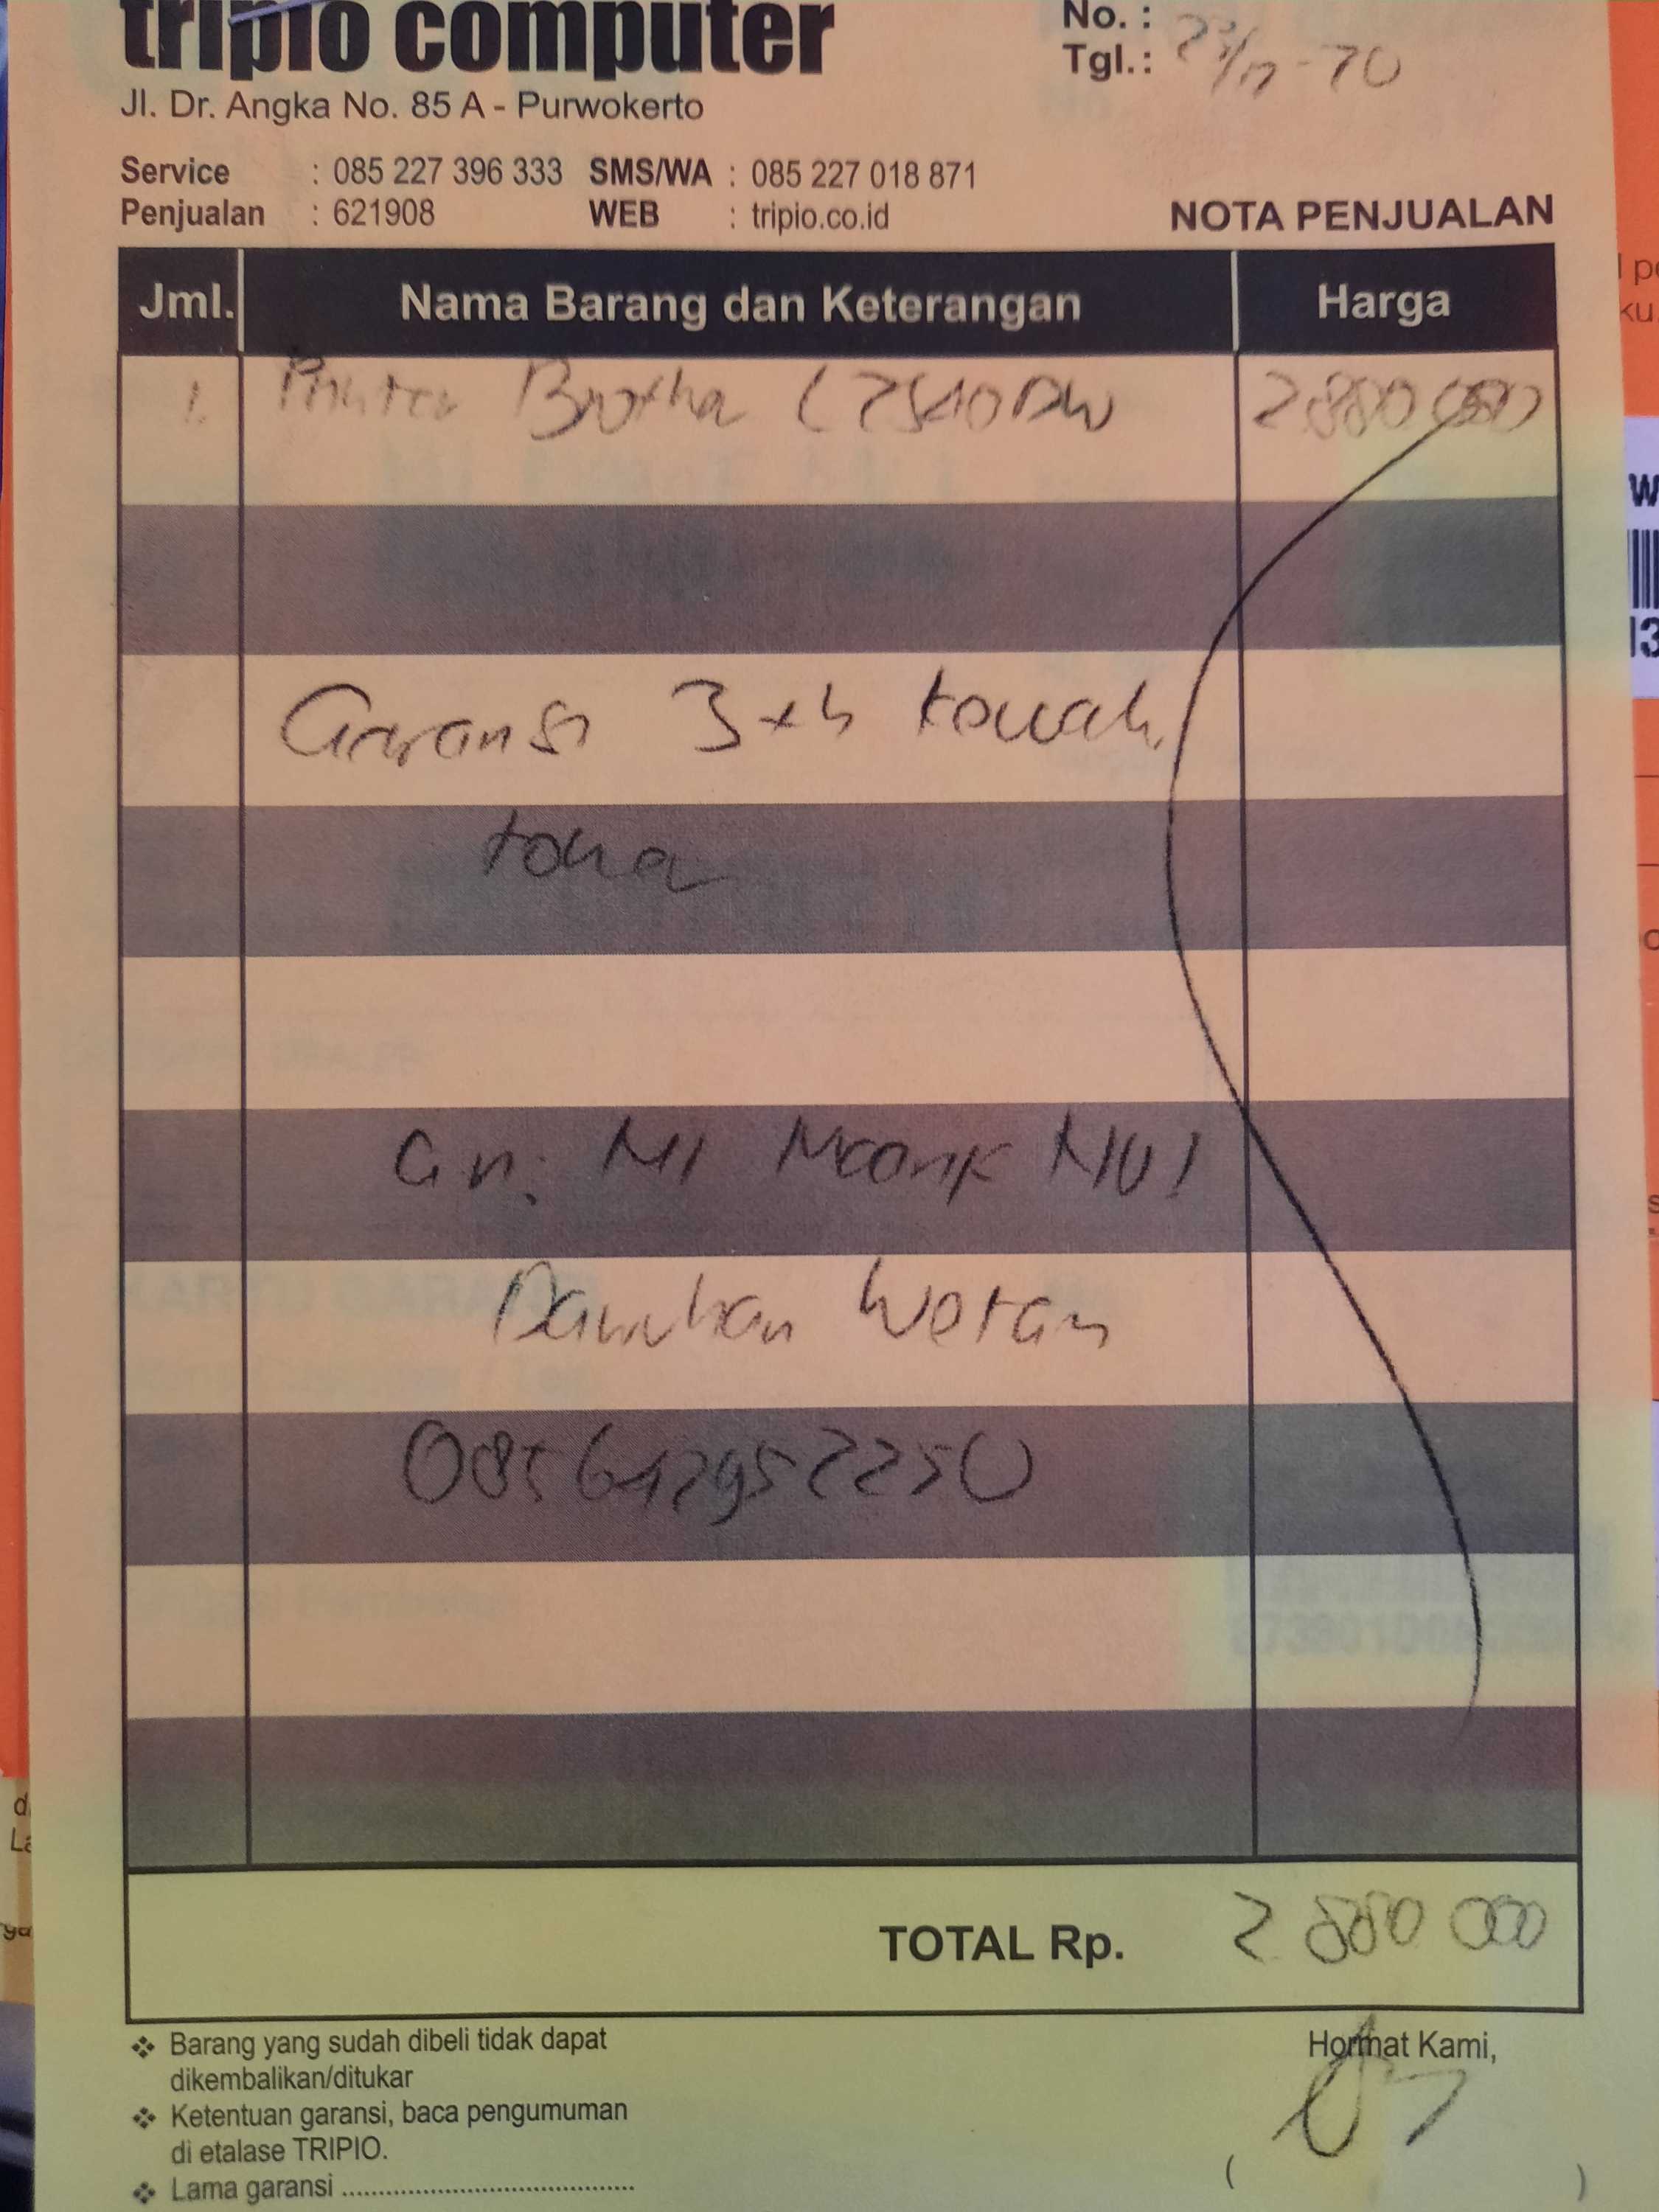 tripio computer
No. :
Tgl. : 23/12-20
Jl. Dr. Angka No. 85 A - Purwokerto
Service : 085 227 396 333 SMS/WA : 085 227 018 871
Penjualan : 621908 WEB : tripio.co.id
NOTA PENJUALAN
Jml. Nama Barang dan Keterangan Harga
1. Printer Brother L2540DW 2880000
Garansi 3 th kecuali
toner
an: MI Maarif NU 1
Dawuhan Wetan
085642952250
TOTAL Rp. 2880 000
Barang yang sudah dibeli tidak dapat
dikembalikan/ditukar
Hormat Kami,
Ketentuan garansi, baca pengumuman
di etalase TRIPIO.
Lama garansi ..........................................
( )